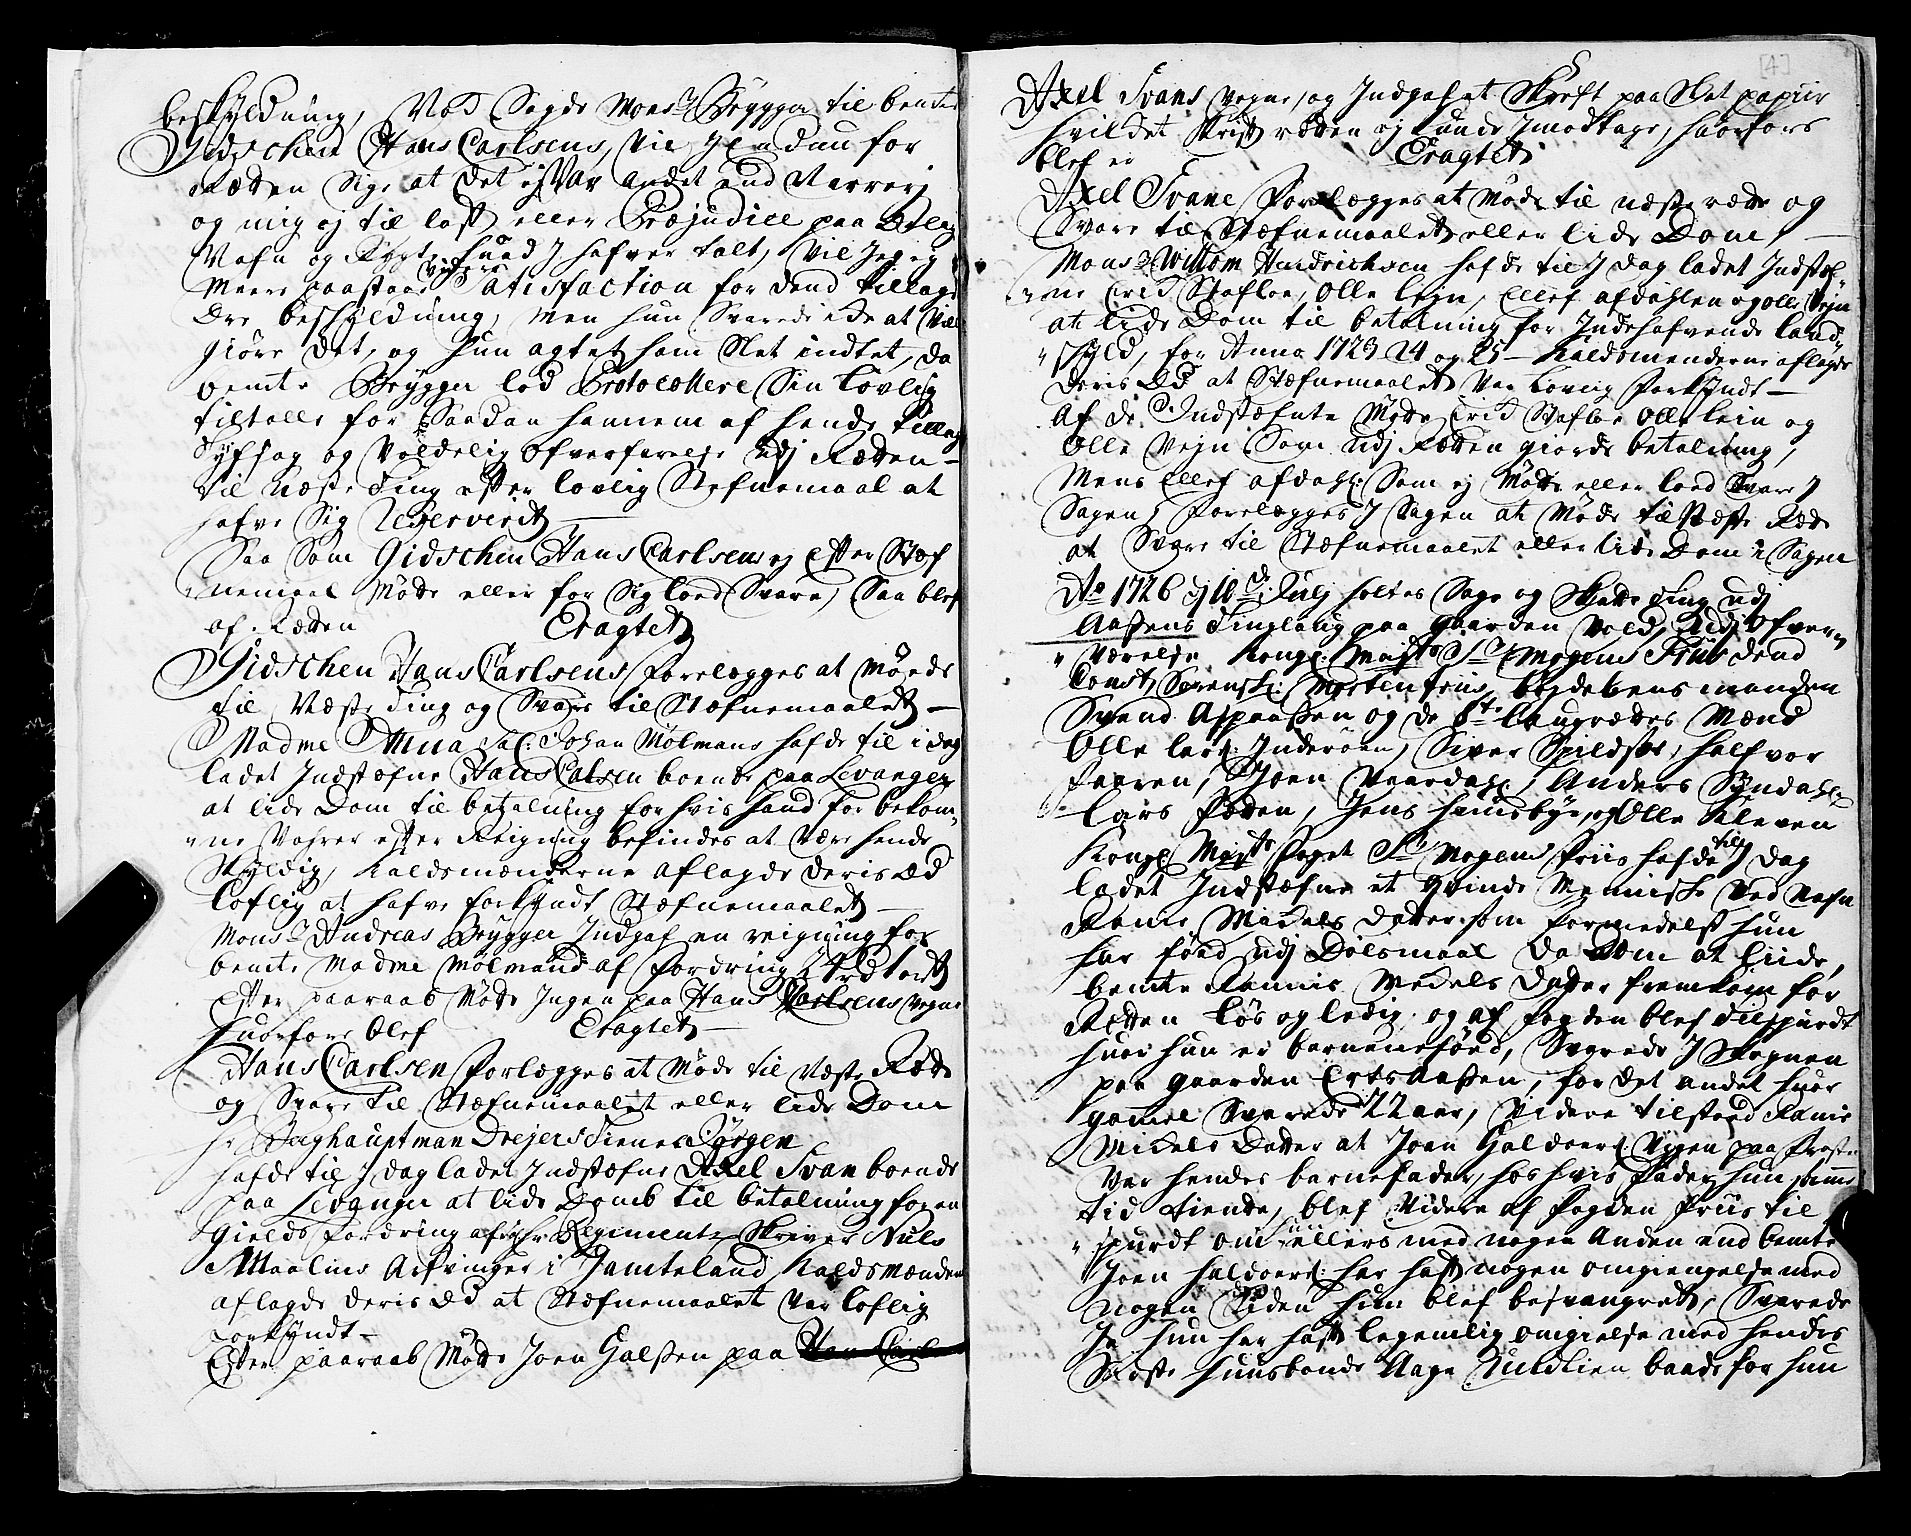 beskyldning, Ved Sagde Mons:r Brygger til bemte
Gidschen Hans Carlsens, Vil I endnu for
Retten Sige at det ej Var andet end Narrerj
og mig ej til last eller Præjudice paa
Nafn og Rygte huad I hafver talt, Vil Jeg ej
Meere paastaae Videre Satisfaction for dend tillagde
Beskyldning, Men hun Svarede Ikke at Ville
Giøre det, og hun agtet ham Slet indtet, da
bemte Brygger lod Protocollere Sin lovlig
tiltalle for Saadan hannem af hende tillagt
Tyfsag og Voldelig ofverfarelse udj Retten
til Næste Ting efter lovlig Stefnemaal at
hafve Sig Reserverit
Saa Som Gidschen Hans Carlsens ej Efter Stæf
nemaal Møtte eller for Sig loed Svare, Saa blef
af Retten Eragtet
Gidschen Hans Carlsens forelegges at Møede
til Næste Ting og Svare til Stæfnemaalet
Madme Anna Sal: Johan Mølmans hafde til i dag
ladet Indstæfne Hans Carlsen boende paa Levanger
at lide Dom til betalning for hvis hand for bekom
ne Vahrer efter Reigning befindes at Være hende
Skyldig, Kaldsmænderne aflagde deris Æd
Loflig at hafve forkyndt Stæfnemaalet
Mons:r Andreas Brygger Indgaf en reigning for
bemte Madme Mølmand af fordring
Efter paaraab Møtte Ingen paa Hans Carlsens Vegne
huorfore blef Eragtet
Hans Carlsen forlegges at Møde til Næste Rett
og Svare til Stæfnemaalet eller lide Dom
hr Berghauptman Drejers Tienere Jørgen
hafde til I dag ladet Indstæfne Axel Svan boende
paa Levanger at lide Domb til betalning for en
Gields fordring af Regiments Skriver Niels
Maalins Arfvinger i Jamteland Kaldsmænden
aflagde deris Æd at Stæfnemaalet Var loflig
forkyndt
Efter paaraab Møtte Joen Galssen paa
5
[4]
Axel Svans Vegne, og Indgaf et Skrift paa Slet papiir
hvilcket Skrift retten ej kunde Jmodtage, huorfore
blef er Eragtet
Axel Svane Forelægges at Møde til næste rett og
Svare til Stæfnemaalet eller lide Dom
Mons:r Willom Hendrichsen hafde til I dag ladet Indstæf
ne Erich Stafloe, Olle lejn, Ellef afdahlen og olle Vejn
at lide Dom til betalning for Indehafvende land
skyld, for Anno 1723 24 og 25 Kaldsmenderne aflagde
Deris Æd at Stæfnemaalet Var lovlig forkyndt
Af de Indstæfnte Møtte Erich Stafloe olle lein og
Olle Vejn Som udj Retten giorde betalning,
Mens Ellef afdahl: Som ej Møtte eller loed Svare I
Sagen, forelægges I Sagen at Møde til Næste Rett
at Svare til Stæfnemaalet eller lide Dom i Sagen
Ao 1726 dj 10de Julj holtes Sage og Skatte Ting udj
Aassens Tinglaug paa Gaarden Vold, Udj ofver
Værelse Kongl: Mayts S:r Mogens Friis dend
Const: Sorensk: Morten friis, bøjdelens manden
Svend Aspaassen og de 8te laugrættes Mænd
Olle lars: Inderøen, Siver Spildste, halfvor
faaren, Joen Vaardahl, Anders Syndahl
lars fætten, Jens huusbye, og Olle Kleven
Kongl May:ts foget S:r Mogens friis hafde til I dag
ladet Indstæfne et qvinde Menniske Ved Nafn
Ranie Mickels datter som formedelst hun
har fød udj Dølsmaal da Dom at liide,
bemte Rannie Mickels Datter fremkom for
Retten løs og ledig og af fogden blef Tilspurdt
huor hun er barnenefød, Svarede I Sognen
paa gaarden Ertsaassen, for det andet huor
gamel Svarede 22 aar, Videre tilstoed Ranie
Mickels Datter at Joen Haldoers: Vigen paa Frosten
Var hendes barnefader, hos hvis Fader hun samme
tid tiente, blef Videre af fogden Friis til
spurdt om hun ellers med nogen Anden end bemte
Joen haldoers: har haft nogen omgiengelse med
nogen Siden hun blef besvangret, Svarede
Ja hun har haft legemlig omgielse med hendes
Sidste huusbonde Aage Kuldlien baade for hun